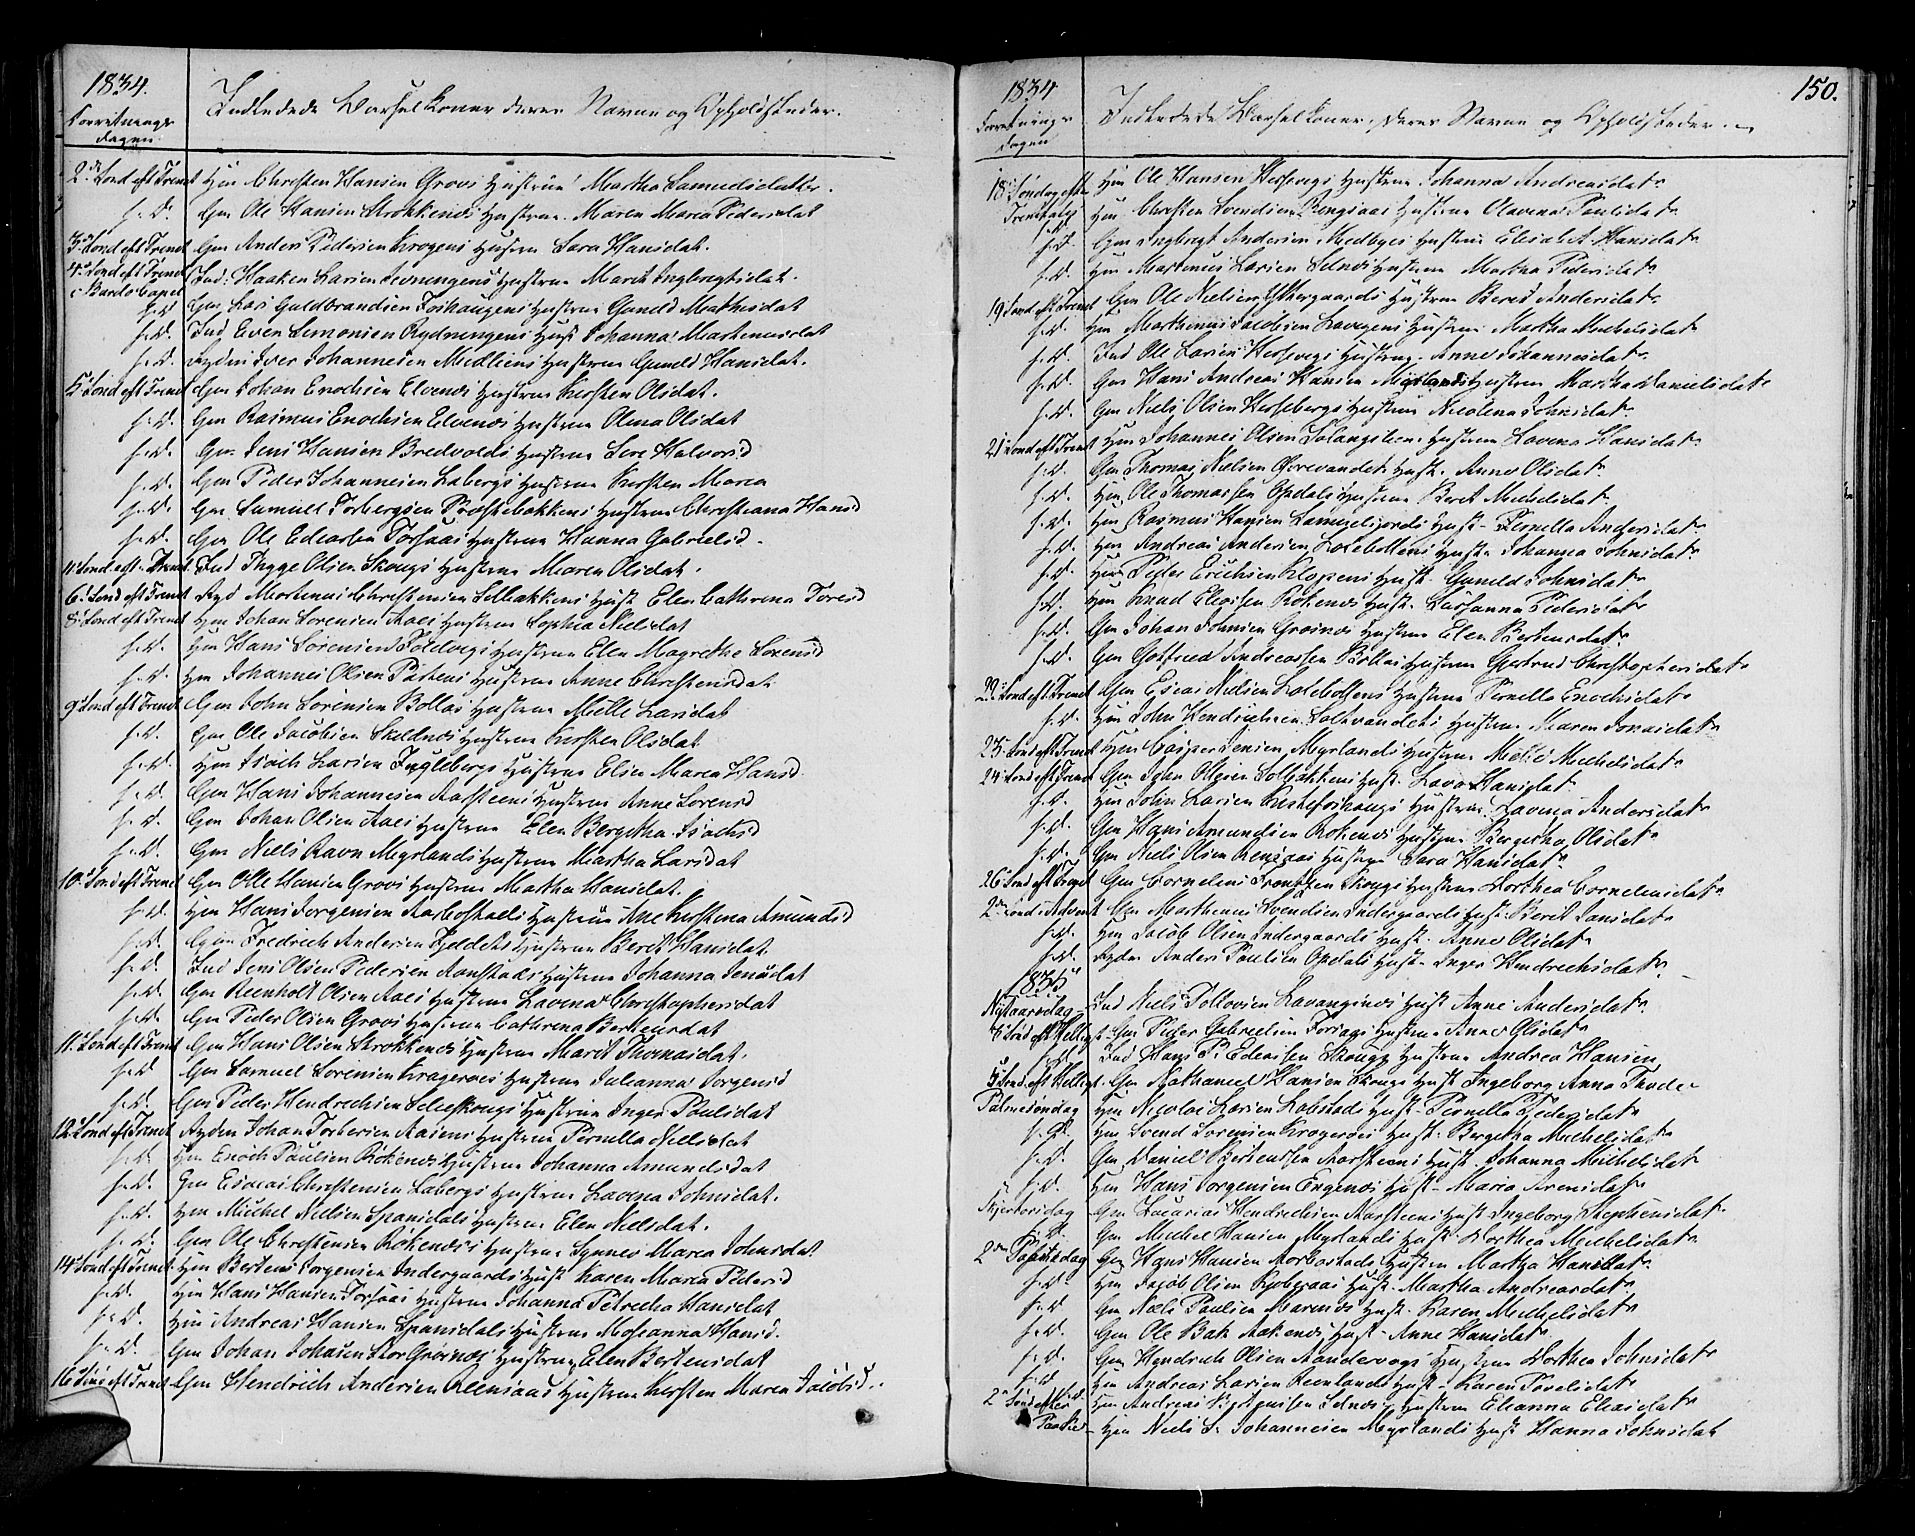 1834.
Forretnings
dagen
Indledede Barselkoner deres Navne og Opholdsteder.
2den Sond eft Trinit Gm Christen Hansen Grovs Hustrue Martha Samuelsdatter.
s. D. Gm Ole Hansen Krokkenes Hustrue Maren Maria Pedersdat
3die Sond eft Trinit Gm Anders Pedersen Krogens Hustrue Sara Hansdat.
4de Sond eft Trinit Ind: Haaken Larsen Hustrue Marit Ingbregtsdat.
i Bardo Capel
s. D. Gm Lars Guldbrandsen Foshaugens Hustrue Gunild Mathisdat
s. D. Ind Even Simonsen Rydningens Hust Johanna Martinusdat
s. D. Ryden Iver Johannesen Moellens Hustrue Gunild Hansdat.
5te Sond eft Trinit Gm Johan Enochsen Elvenes Hustrue Kirsten Olsdat.
s. D. Gm Rasmus Enochsen Elvenes Hustrue Olina Olsdat
s. D. Gm Jens Hansen Bredvolds Hustrue Sere Halvorsd
s. D. Gm Peder Johannesen Labergs Hustrue Kirsten Maria
s. D. Gm Samuel Torbergsen Præstebakkens Hustrue Christiana Hansd
s. D. Gm Ole Ediassen Forsaas Hustrue Hanna Gabrielsd.
11te Sond eft Trinit Ind Trygge Olsen Skougs Hustrue Maren Olsdat.
6te Sond eft Trinit Ryd Martinus Christensen Solbakkens Hust Elen Cathrina Toresd
8de Sond eft Trinit Gm Johan Sørensen Aaes Hustrue Sophia Nielsdat
s. D. Gm Hans Sørensen Foldvigs Hustrue Elen Magrethe Sørensd
s. D. Gm Johannes Olsen Hustrue Anne Christensdat
9de Sond eft Trinit Gm John Sørensen Bollas Hustrue Mille Larsdat
s. D. Gm Ole Jacobsen Skillnes Hustrue Kirsten Olsdat
s. D. Gm Isach Larsen Fuglebergs Hustrue Elsen Maria Hansd.
s. D. Gm Hans Johannesen Aarsteens Hustrue Anne Sørensd
s. D. Gm Johan Olsen Aaes Hustrue Elen Bergitha Isachsd
s. D. Gm Niels Ravn Myrlands Hustrue Martha Larsdat
10de Sond eft Trinit Gm Olle Hansen Grovs Hustrue Martha Hansdat.
s. D. Gm Hans Jørgensen Aarbostads Hustrue Ane Kirstina Amundsd
s. D. Gm Fredrich Andersen Fjeldets Hustrue Berit Hansdat
s. D. Ind Jens Olsen Pedersen Aanstads Hustrue Johanna Jensdat
s. D. Gm Reinholt Olsen Aaes Hustrue Lavina Christophersdat
s. D. Gm Peder Olsen Grovs Hustrue Cathrina Bertensdat
11te Sond eft Trinit Gm Hans Olsen Krokkenes Hustrue Marit Thomasdat.
s. D. Gm Samuel Sørensen Kragerøes Hustrue Julianna Jørgensd
s. D. Gm Peder Hendrichsen Hustrue Inger Paulsdat
12te Sond eft Trinit Ryden Johan Torbersen Hustrue Pernella Nielsdat
s. D. Gm Enoch Paulsen Rokenes Hustrue Johanna Amundsdat
s. D. Gm Esaias Christensen Labergs Hustrue Lavina Johnsdat.
s. D. Gm Michel Nielsen Spansdals Hustrue Elen Nielsdat.
s. D. Gm Ole Christensen Rokenes Hustrue Synnev Maria Johnsdat
14de Sond eft Trinit Gm Bertius Jørgensen Indergaards Hust Karen Maria Pedersd
s. D. Gm Hans Hansen Forsaas Hustrue Johanna Petricha Hansdat
s. D. Gm Andreas Hansen Spansdals Hustrue Moseanna Hansd.
s. D. Gm Johan Johnsen Stor Grøsnes Hustrue Elen Bertensdat
16de Sond eft Trinit Gm Hendrich Andersen Rensaas Hustrue Kirsten Maria Jacobsd.
1834
150.
Forretnings
dagen
Indledede Barselkoner, deres Navne og Opholdsteder.
18de Søndag efter Gm Ole Hansen Hersvigs Hustrue Johanna Andreasdat
Trinitatis Gm Christen Svendsen Hustrue Olavina Paulsdat
s. D. Gm Ingbrigt Andersen Medbyes Hustrue Elisabet Hansdat
s. D. Gm Martinus Larsen Selnes Hustrue Martha Pedersdat
19 Sond eft Trinit Gm Ole Nielsen Yttergaards Hustrue Berit Andersdat
s. D. Gm Marthinus Jacobsen Lavigens Hustrue Martha Michelsdat
s. D. Ind Ole Larsen Hersvigs Hustrue Anne Johannesdat
s. D. Gm Hans Andreas Hansen Myrlands Hustrue Martha Danielsdat
s. D. Gm Niels Olsen Herseberg's Hustrue Nicolina Johnsdat
21 Sond eft Trinit Gm Johannes Olsen Salangslien Hustrue Lavina Hansdat
s. D. Gm Thomas Nielsen Øvrevandet Hust. Anne Olsdat
s. D. Gm Ole Thomassen Opdals Hustrue Berit Michelsdat
s. D. Gm Rasmus Hansen Hust. Pernella Andersdat
s. D. Gm Andreas Andersen Lølebottens Hust Johanna Johnsdat
s. D. Gm Peder Erichsen Kloppens Hust. Gunild Johnsdat
s. D. Gm Knud Eliassen Rokenes Hust. Susanna Pedersdat
s. D. Gm Johan Johnsen Grøsnes Hustrue Elen Bertensdat
s. D. Gm Gotfried Andreassen Bollas Hustrue Gertrud Christophersdat
22 Sond eft Trinit Gm Esaias Nielsen Lølebottens Hustrue Pernella Enochsdat
s. D. Gm John Hendrichsen Saltvandets Hustrue Maren Jonasdat
23 Sond eft Trinit Gm Casper Jensen Myrlands Hustrue Michelsdat
24 Sond eft Trinit Gm John Olsen Solbakkens Hust. Lava Hansdat
s. D. Gm John Larsen Kistefoshaugs Hustrue Lavina Andersdat
s. D. Gm Hans Amundsen Rokenes Hustrue Bergitha Olsdat
s. D. Gm Niels Olsen Rensaas Hustrue Sara Hansdat
26 Sond eft Trinit Gm Cornelius Frantzen Skougs Hustrue Dorthea Corneliusdat
2den Sond i Advent Gm Marthinus Svendsen Indergaards Hust. Berit Jansdat
s. D. Gm Jacob Olsen Indergaards Hust. Anne Olsdat
s. D. Ryden Anders Paulsen Opdals Hust. Inger Hendrichsdat
1835
Nytaarsdag Ind Niels Tollevsen Lavangsnes Hust Anne Andersdat
Sond eft Helligt. Gm Peder Gabrielsen Forsaas Hustrue Anne Olsdat
s. D. Ind Hans P. Ediassen Skougs Hustrue Andrea Hansen
5 Sond. eft Helligt. Gm Nathaniel Hansen Skougs Hust Ingeborg Anna Thode
Palmesøndag Gm Nicolai Larsen Labstads Hust. Pernella Pedersdat
s. D. Gm Svend Sørensen Kragerøes Hust. Bergitha Michelsdat
s. D. Gm Daniel Bertenssen Aarsteens Hust. Johanna Michelsdat
s. D. Gm Hans Jørgensen Engenes Hust. Maria Arensdat
Skjertorsdag Gm Zacarias Hendrichsen Aarsteens Hust Ingeborg Stephensdat
s. D. Gm Michel Hansen Myrlands Hust. Dorthea Michelsdat
2den Paaskedag Gm Hans Hansen Aarbostads Hustrue Martha Hansdat
s. D. Gm Jacob Olsen Hust. Martha Andreasdat
s. D. Gm Nels Paulsen Hust. Karen Michelsdat
s. D. Gm Ole Bak Aakenes Hust. Anne Hansdat
s. D. Gm Hendrich Olsen Sandervogs Hustrue Dorthea Johnsdat
s. D. Gm Andreas Larsen Reenlands Hust. Karen Povelsdat
2den Sønd efter Gm Andreas Selnes Hustrue Elianna Eliasdat
Paaske Gm Niels S. Johannesen Myrlands Hust Hanna Johnsdat